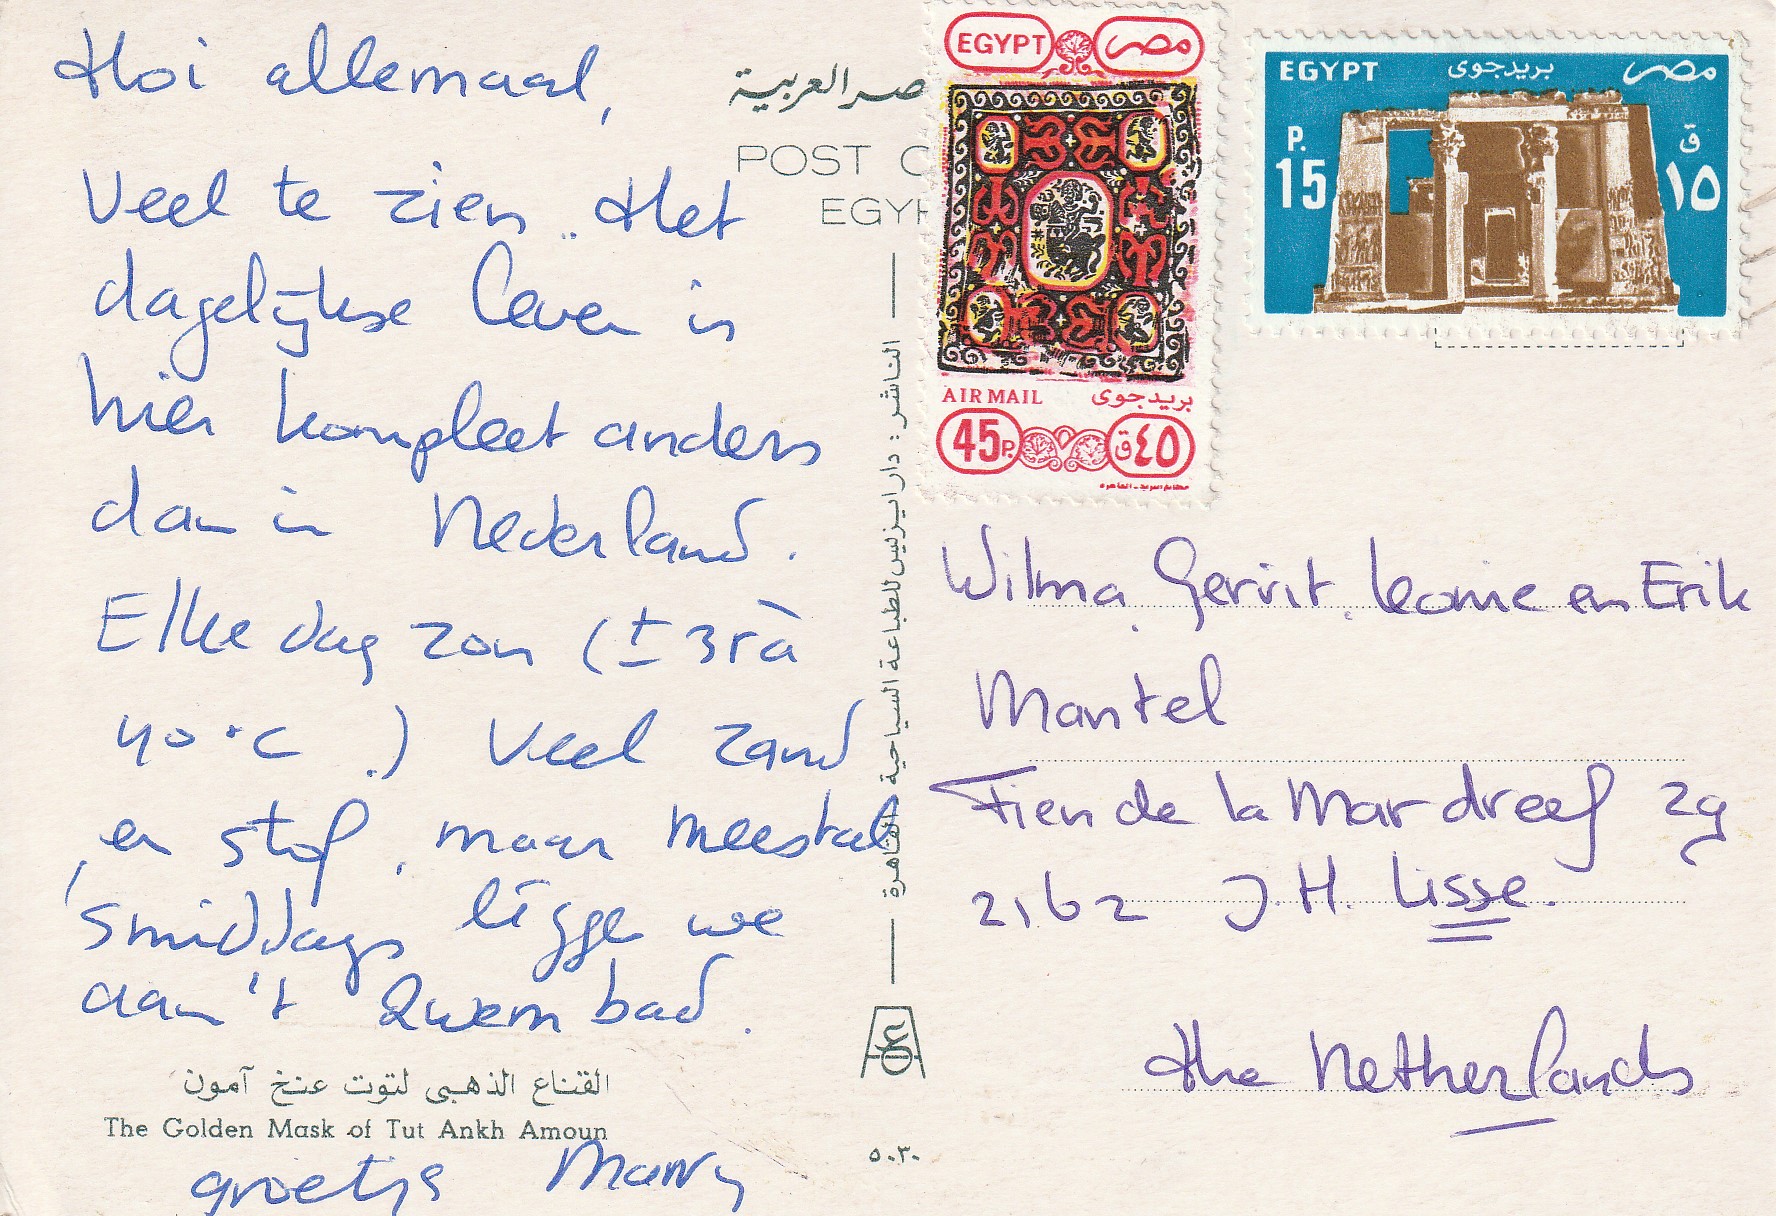 Hoi allemaal,
Veel te zien. Het
dagelijkse leven is
hier kompleet anders
dan in Nederland.
Elke dag zon (± 35 à
40 °C.) Veel zand
en stof, maar meestal
's middags liggen we
aan 't zwembad.
القناع الذهبى لتوت عنخ آمون
The Golden Mask of Tut Ankh Amoun
groetjes
صر العربية
POST C
EGYP
الناشر : دار ايزيس للطباعة السياحية القاهرة
٥٠٣٠
EGYPT مصر
AIR MAIL بريد جوى
45P. ٤٥ق
EGYPT بريد جوى مصر
P. 15 ق ١٥
Wilma, Gerrit, Leonie en Erik
Mantel
Fien de la Mar dreef 29
2162 J.H. Lisse.
the Netherlands